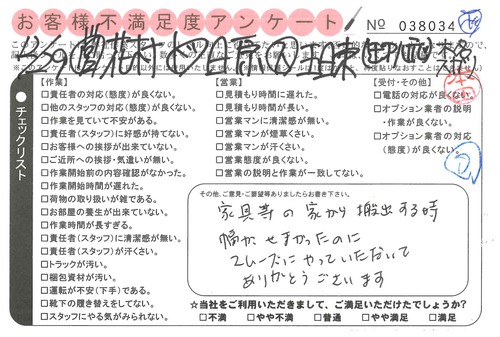 お客様不満足度アンケート
No 038034
チェックリスト
【作業】
□責任者の対応(態度)が良くない。
□他のスタッフの対応(態度)が良くない。
□作業を見ていて不安がある。
□責任者(スタッフ)に好感が持てない。
□お客様への挨拶が出来ていない。
□ご近所への挨拶・気遣いが無い。
□作業開始前の内容確認がなかった。
□作業開始時間が遅れた。
□荷物の取り扱いが雑である。
□お部屋の養生が出来ていない。
□作業時間が長すぎる。
□責任者(スタッフ)に清潔感が無い。
□責任者(スタッフ)が汗くさい。
□トラックが汚い。
□梱包資材が汚い。
□運転が不安(下手)である。
□靴下の履き替えをしてない。
□スタッフにやる気がみられない。
【営業】
□見積もり時間に遅れた。
□見積もり時間が長い。
□営業マンに清潔感が無い。
□営業マンが煙草くさい。
□営業マンが汗くさい。
□営業態度が良くない。
□営業の説明と作業が一致してない。
【受付・その他】
□電話の対応が良くない。
□オプション業者の説明
・作業が良くない。
□オプション業者の対応
(態度)が良くない。
その他、ご意見・ご要望等ありましたらお書き下さい。
家具等の家から搬出する時
幅がせまかったのに
スムーズにやっていただいて
ありがとうございます
☆当社をご利用いただきまして、ご満足いただけたでしょうか?
□不満 □やや不満 □普通 □やや満足 □満足